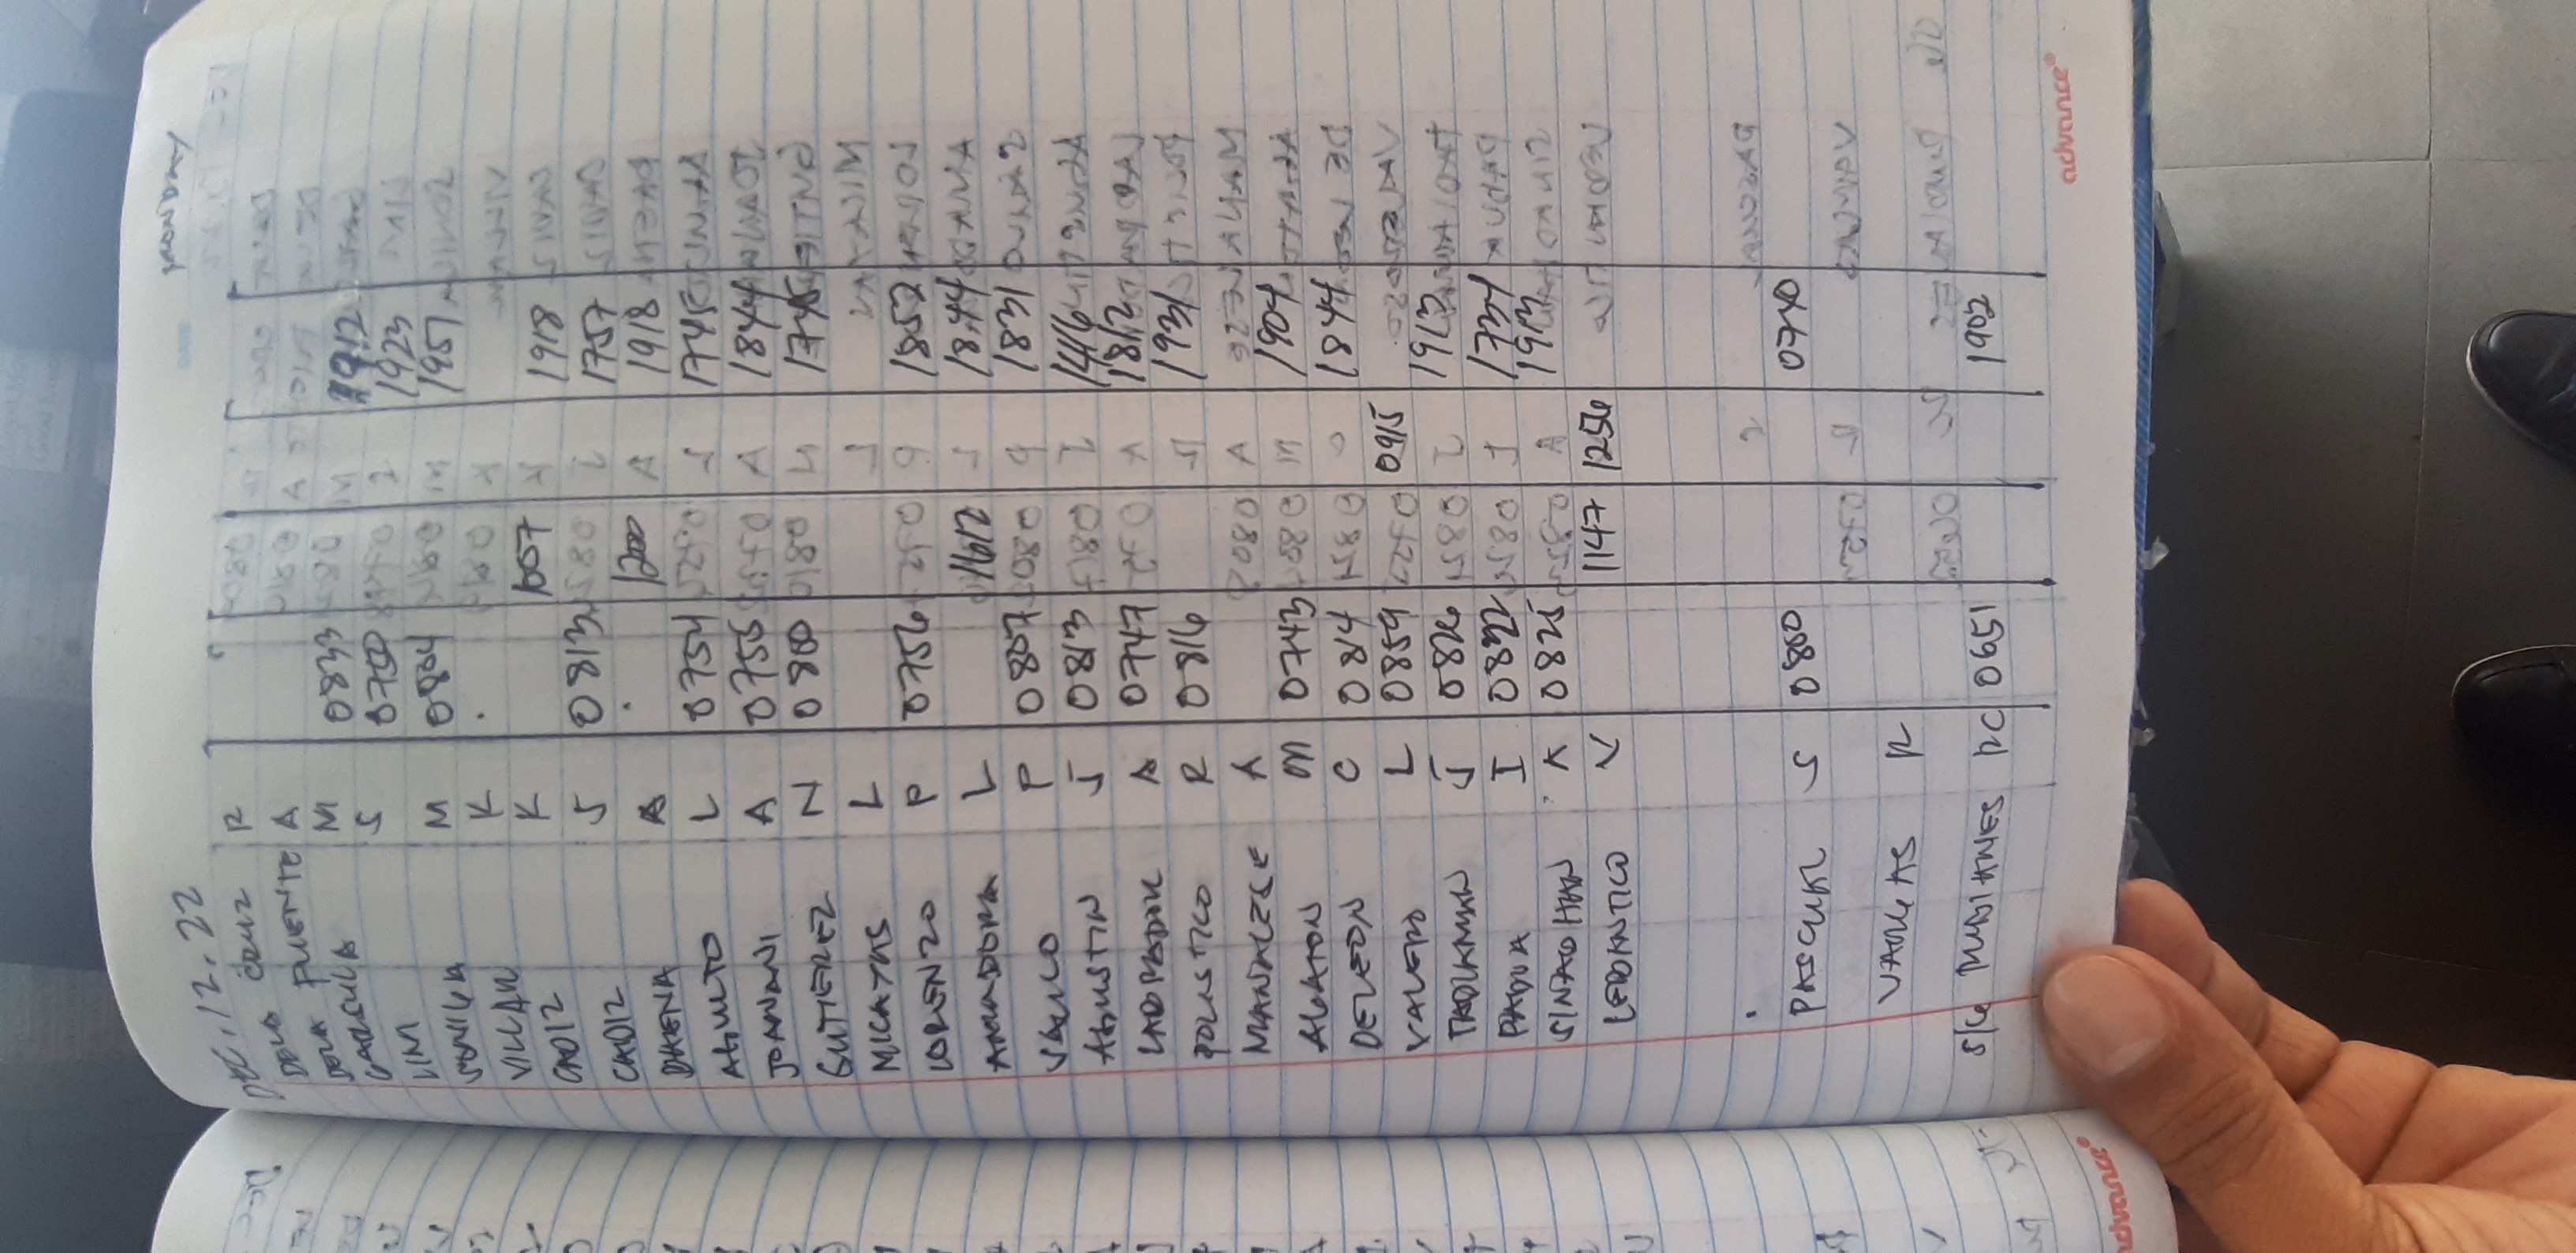 MONDAY
DEC. 12. 22
DELA CRUZ R
DELA PUENTE A
GARSULA M 0833 1912
LIM S 0750 1923
SONIGA M 0804 1951
VILLAR K
CADIZ K 1057 1918
CADIZ J 0813 1757
DHENA A 1200 1918
AGULTO L 0754 1745
JOANANI A 0755 1844
GUTIEREZ N 0800 1745
L
LORENZO P 0756 1852
AMADORA L 1612 1844
P 0807 1831
AGUSTIN J 0813 1416
LABRADOR A 0747 1812
POLISTICO R 0816 1931
MANALESE A
AGATON M 0743 1904
DELEON C 0814 1844
VALERO L 0859 0915
TADIAMAN J 0826 1913
PADUA I 0822 1734
SINAOHAN A 0825 1913
LEDANTICO V 1147 1256
PASCUAL S 0800 0740
VARGAS R
S/G RUBIANES RC 0651 1902
advance
advance